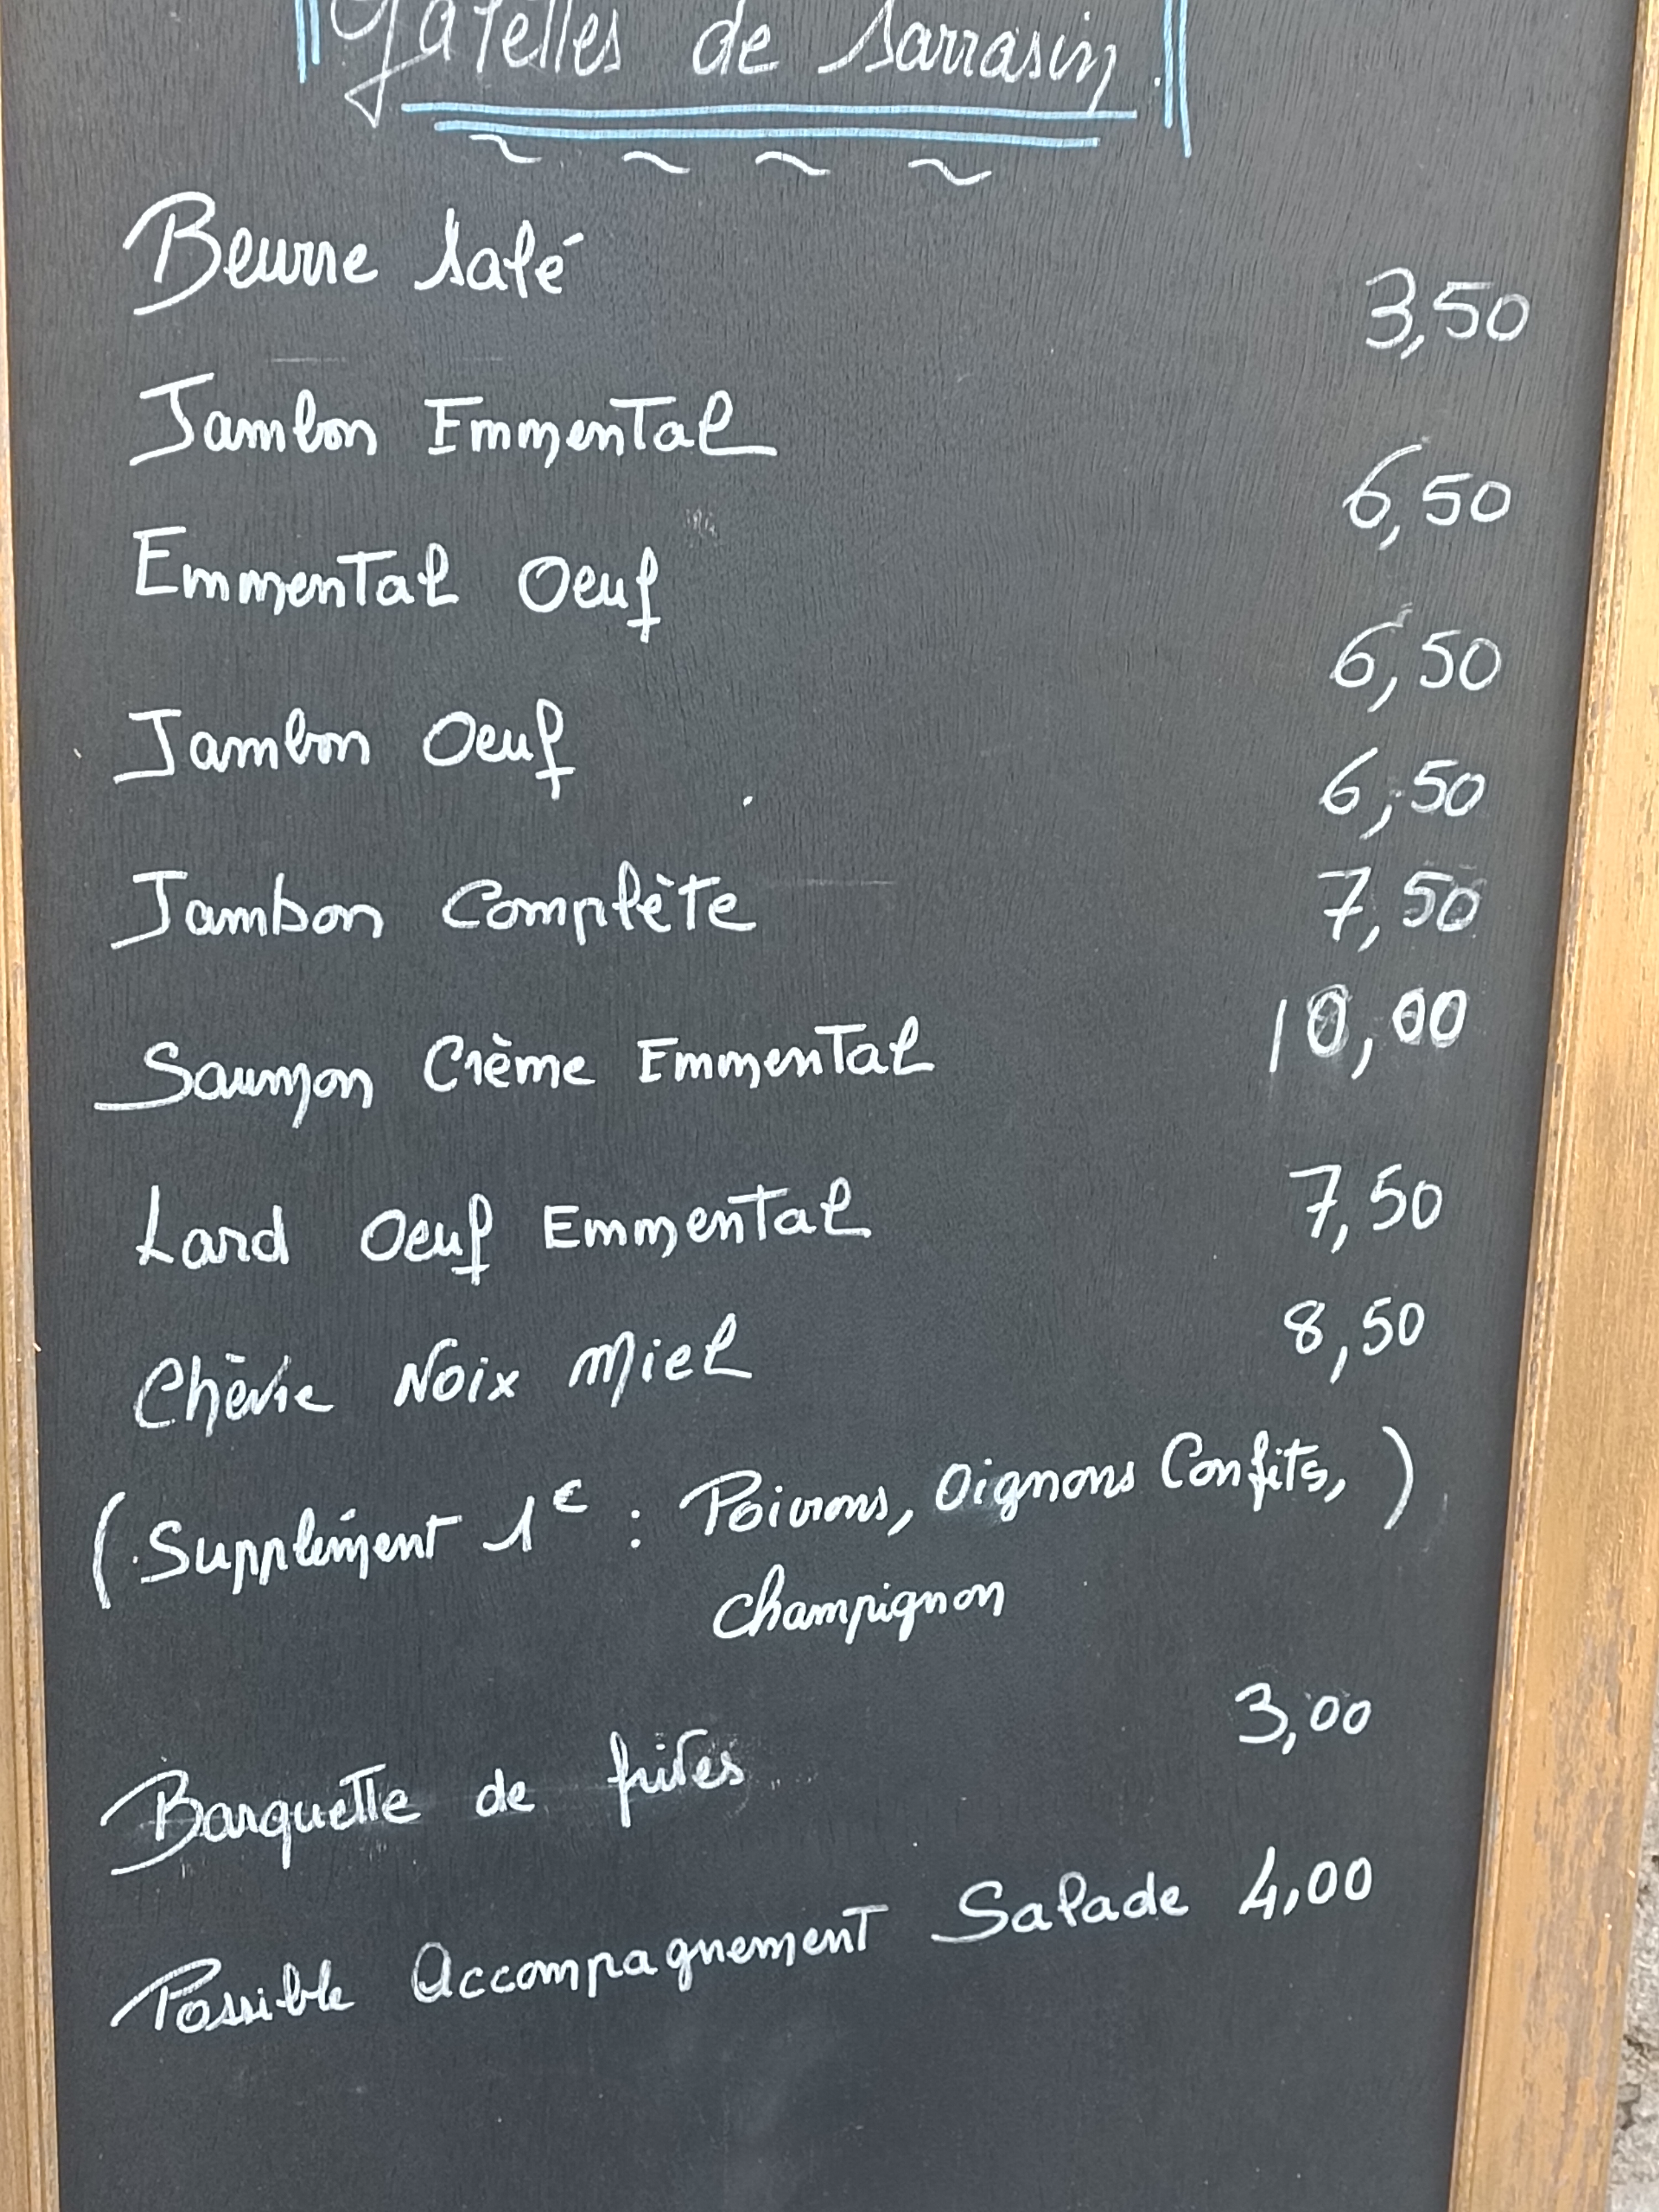 Galettes de Sarrasin.
Beurre salé 3,50
Jambon Emmental 6,50
Emmental Oeuf 6,50
Jambon Oeuf 6,50
Jambon Complète 7,50
Saumon Crème Emmental 10,00
Lard Oeuf Emmental 7,50
Chèvre Noix Miel 8,50
(Supplément 1€ : Poivrons, Oignons Confits,)
champignon
Barquette de frites 3,00
Possible Accompagnement Salade 4,00